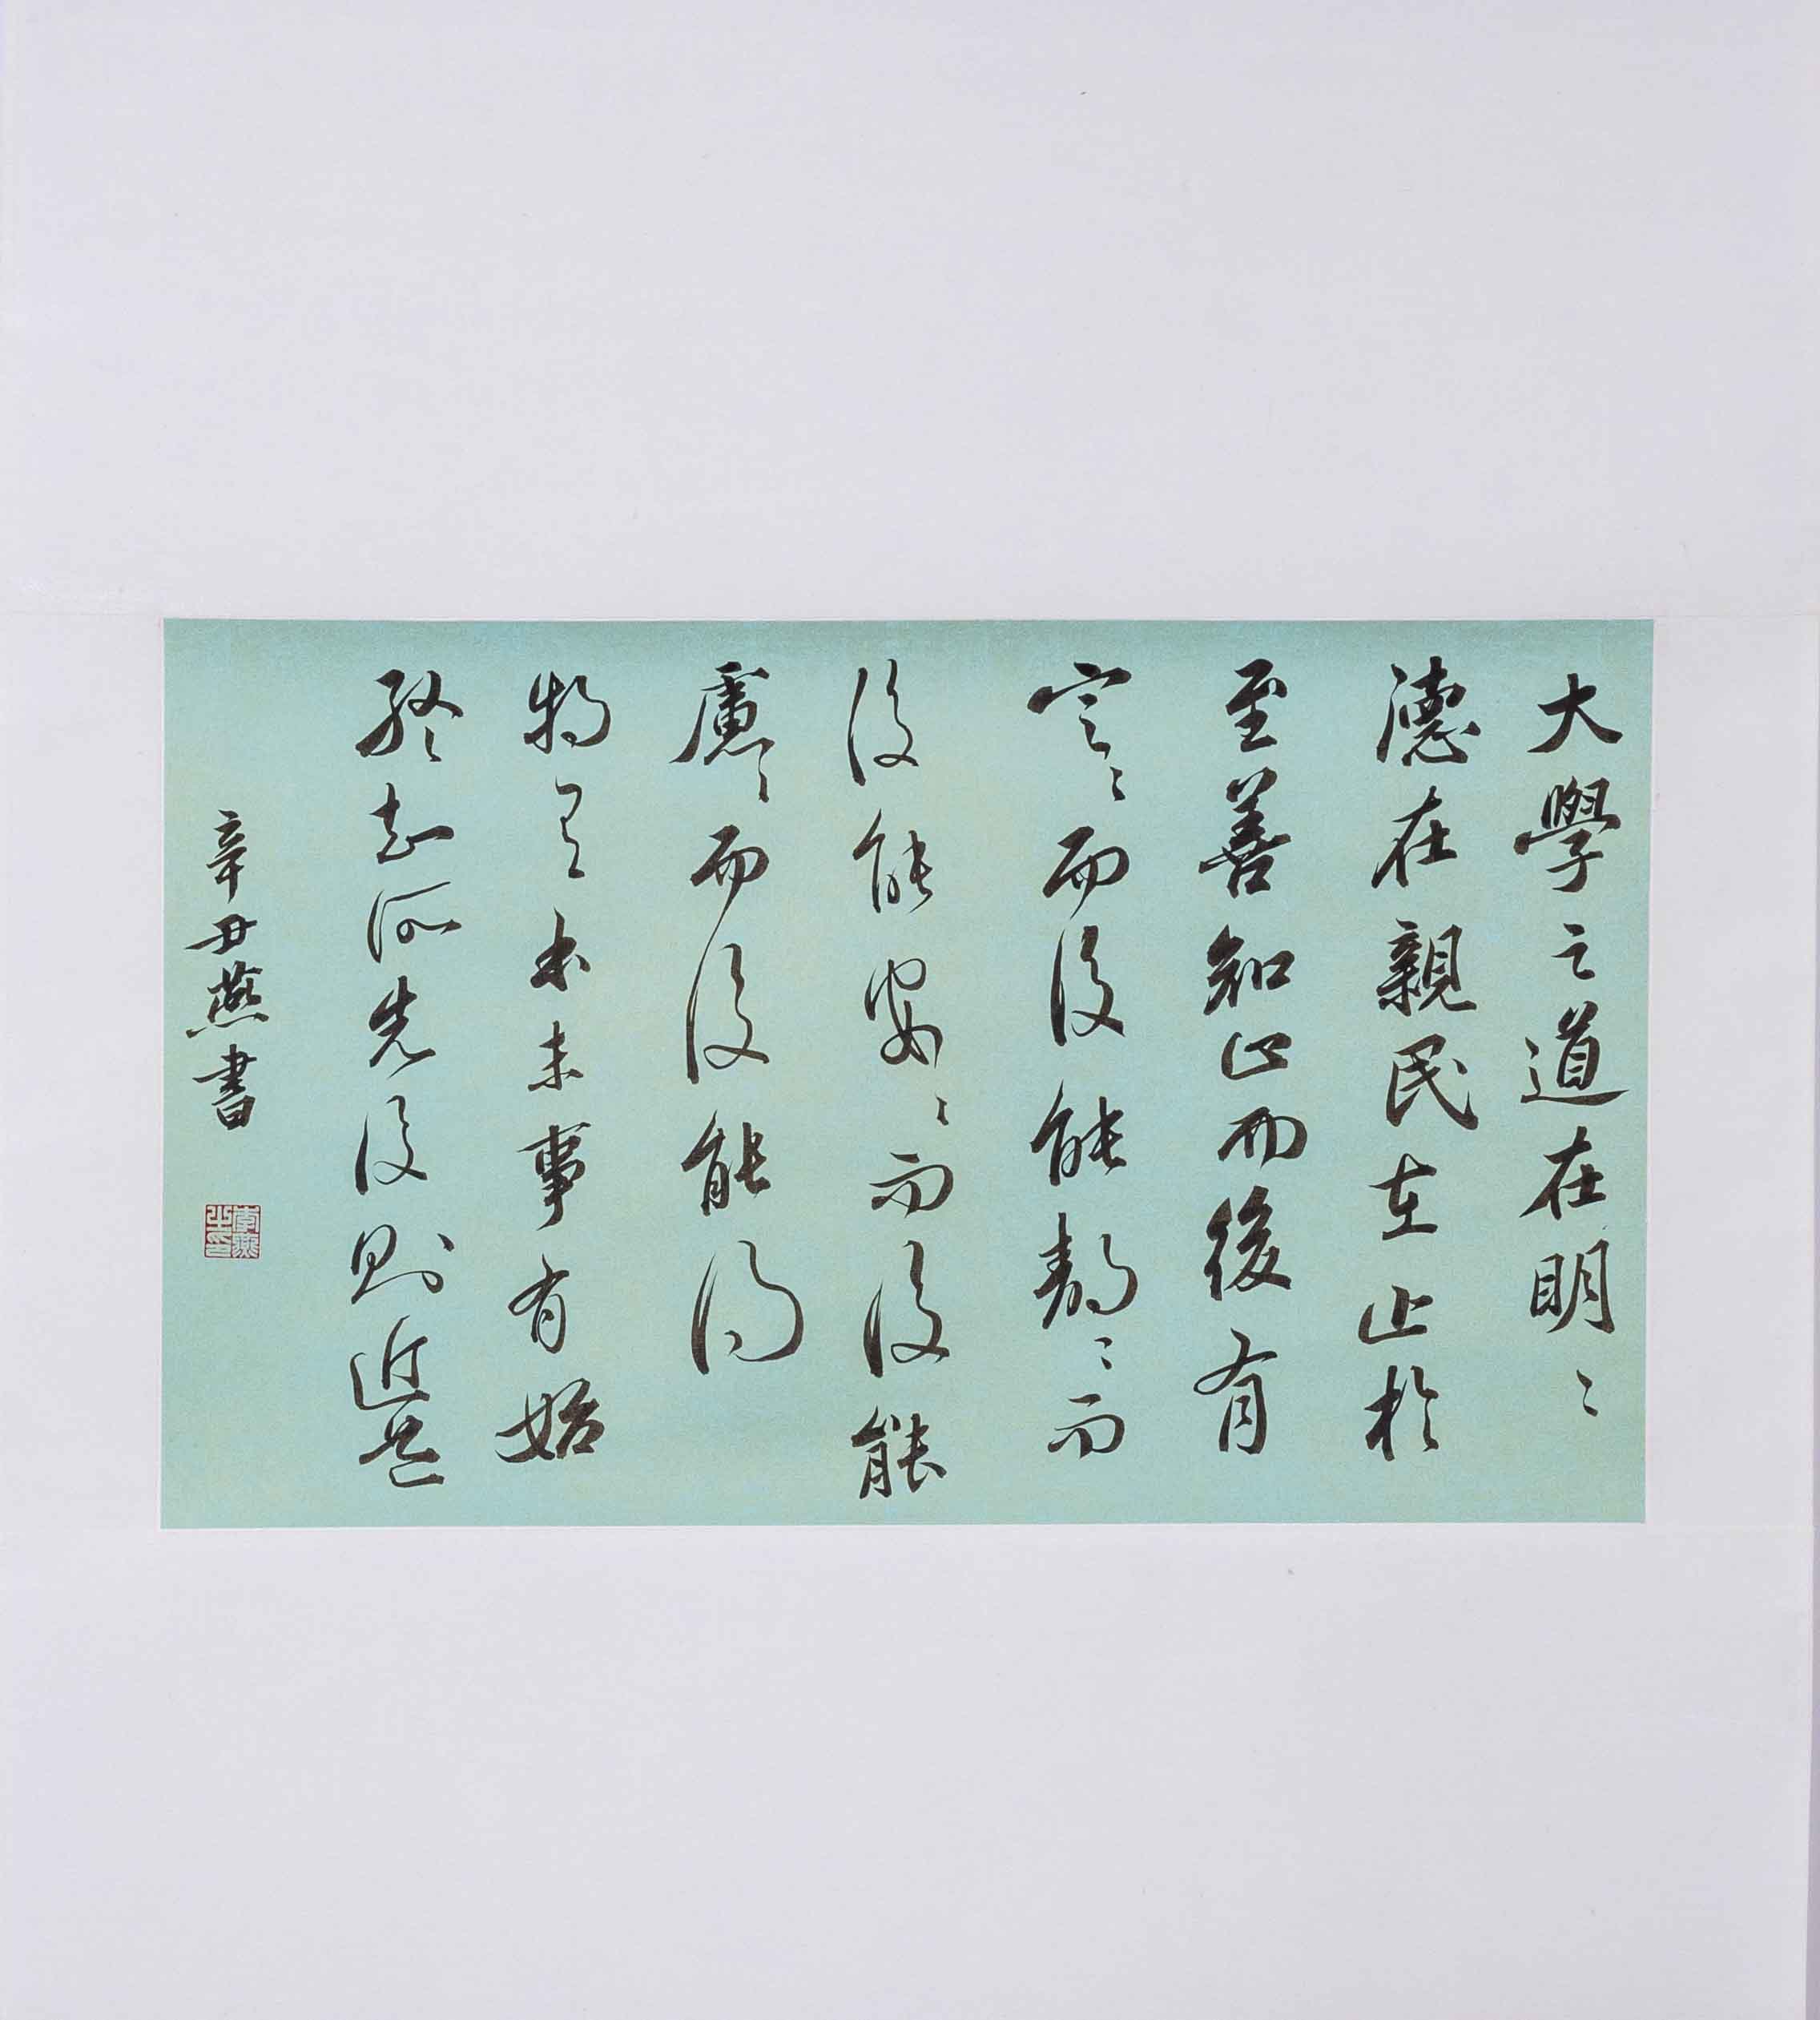 大學之道在明〻
德在親民在止於
至善知止而後有
定〻而後能靜〻而
後能安〻而後能
慮〻而後能得
物有本末事有始
終知所先後則近道
辛丑燕書
李燕之印